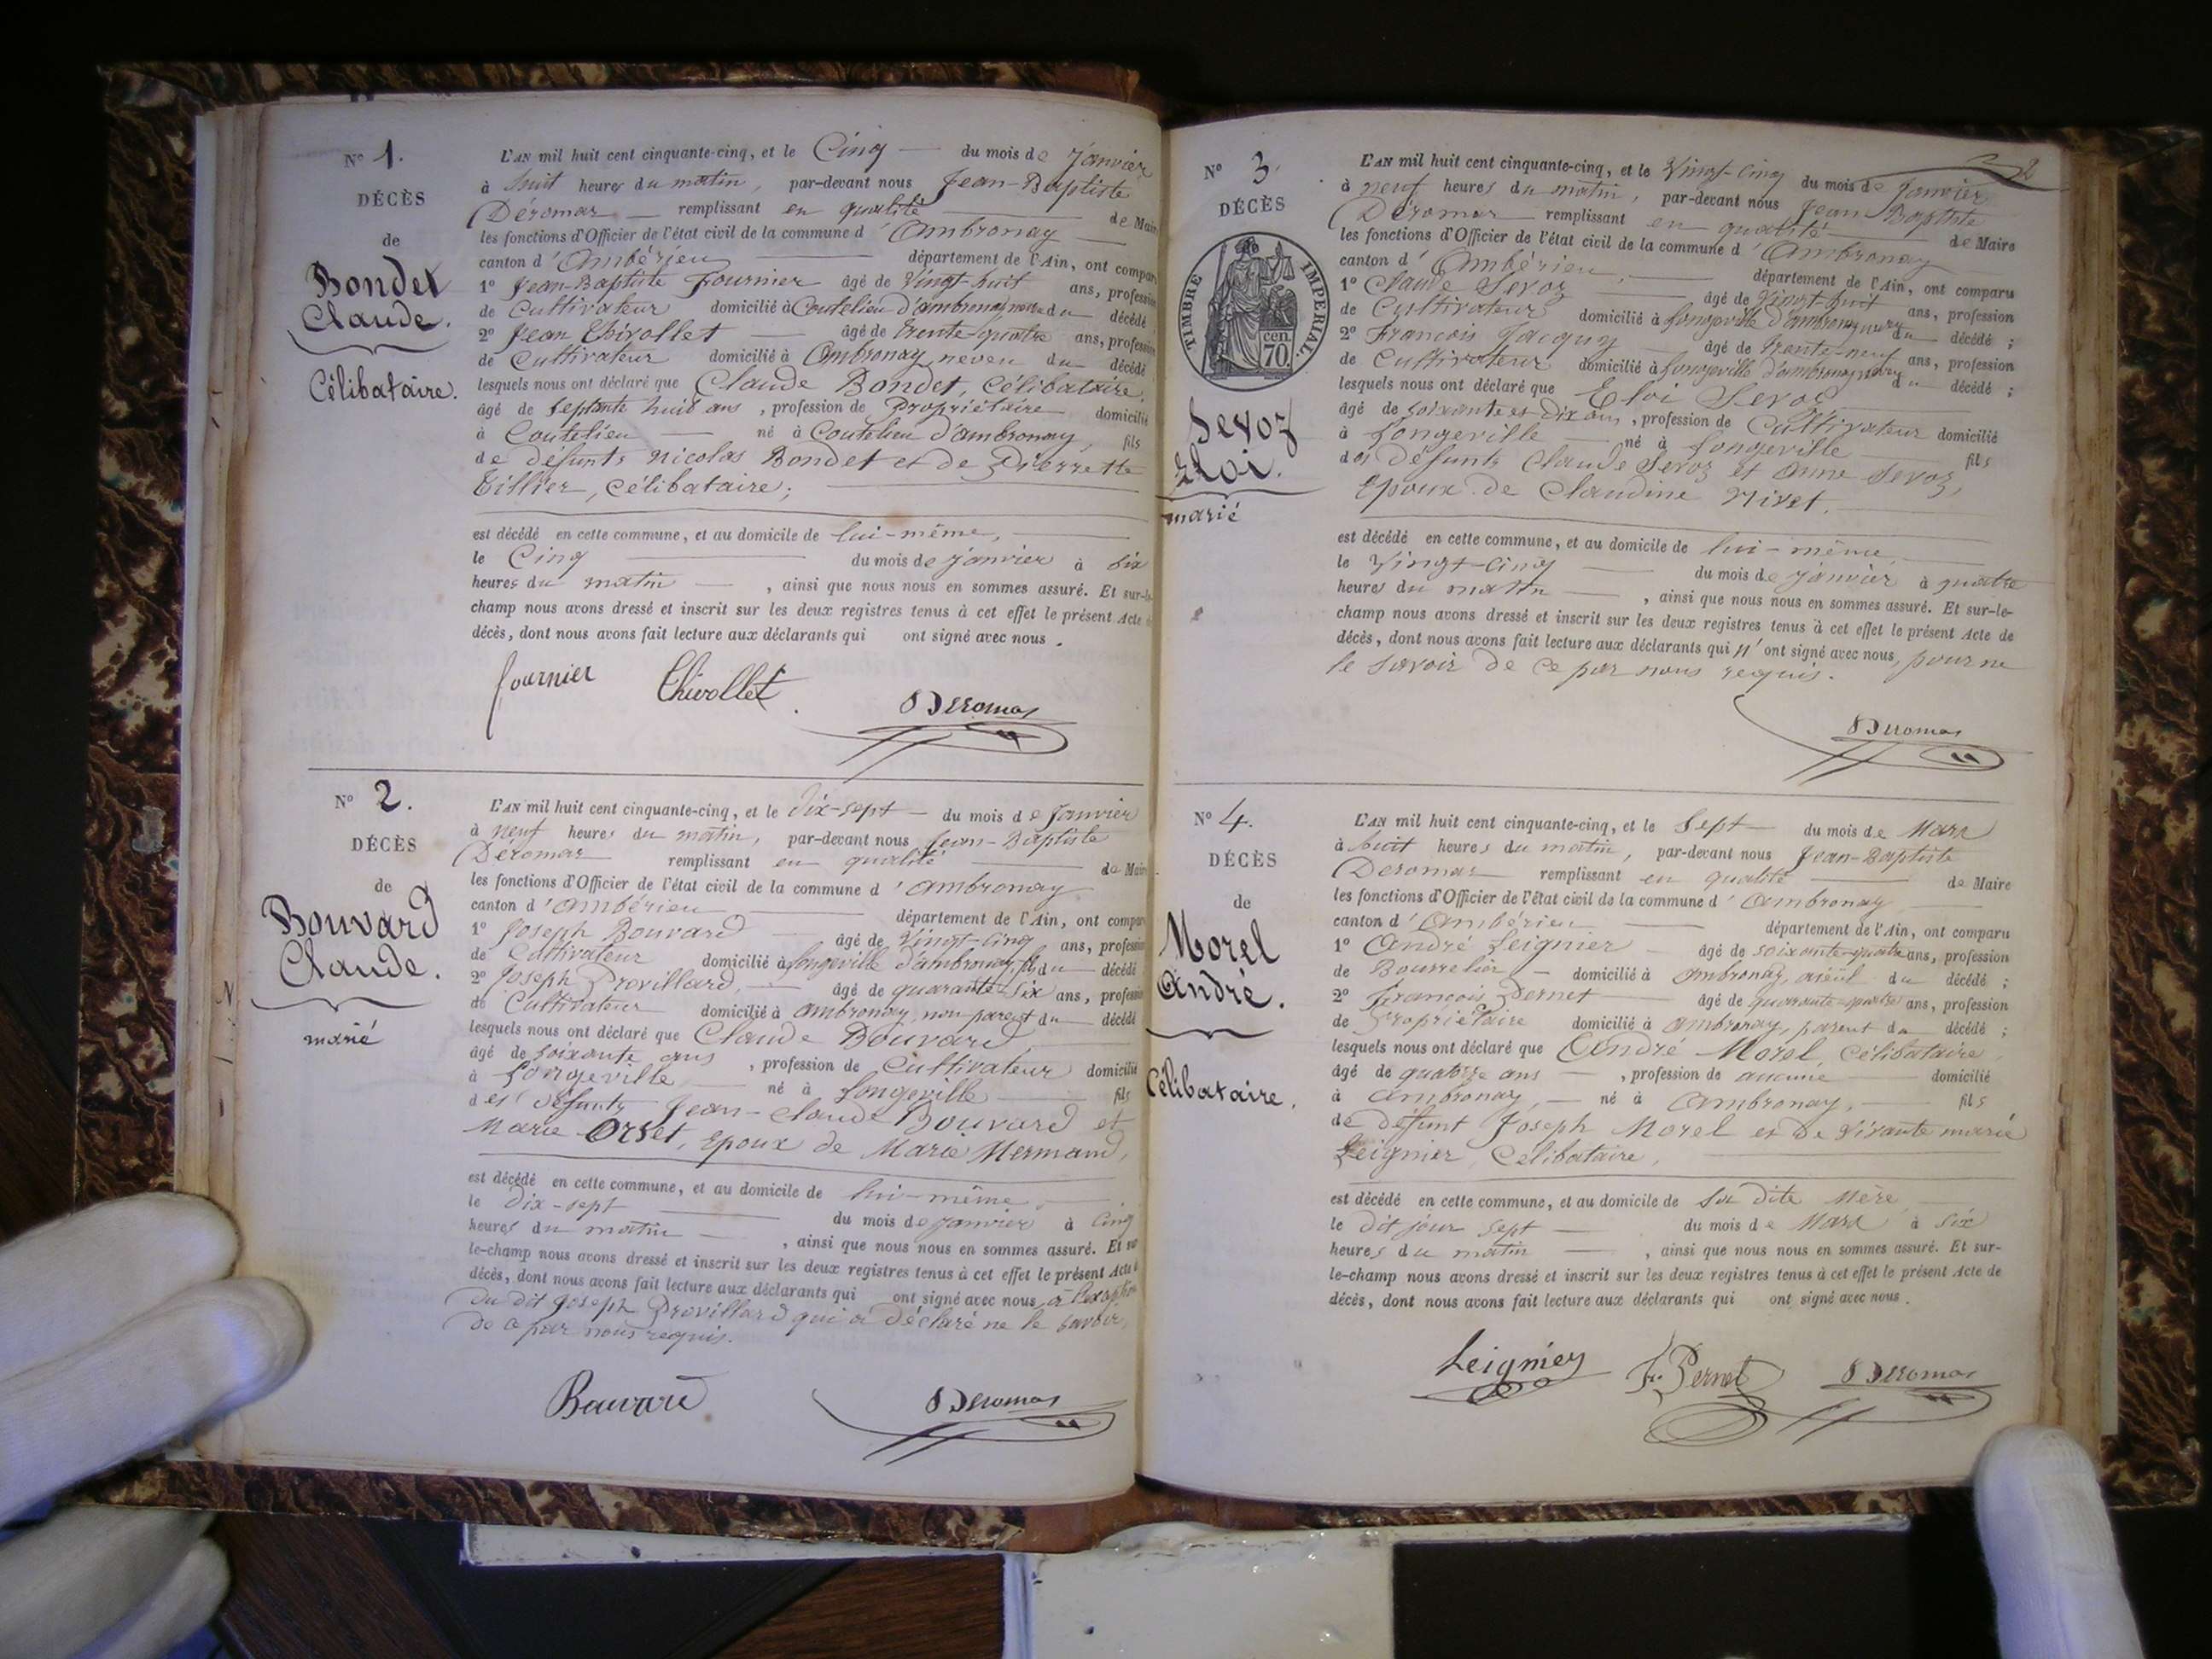 N° 1.
DÉCÈS
de
Bondet
Claude.
Célibataire.
L'AN mil huit cent cinquante-cinq, et le Cinq du mois de Janvier
à huit heures du matin, par-devant nous Jean-Baptiste
Déromas remplissant en qualité de Maire
les fonctions d'Officier de l'état civil de la commune d'Ambronay
canton d'Ambérieu département de l'Ain, ont comparu
1° Jean-Baptiste Fournier âgé de Vingt-huit ans, profession
de Cultivateur domicilié à Coutelieu d'ambronay neveu du décédé
2° Jean Chivollet âgé de trente-quatre ans, profession
de Cultivateur domicilié à Ambronay neveu du décédé
lesquels nous ont déclaré que Claude Bondet, Célibataire,
âgé de septante huit ans, profession de Propriétaire domicilié
à Coutelieu né à Coutelieu d'ambronay, fils
de défunts Nicolas Bondet et de Pierrette
Tillier, célibataire;
est décédé en cette commune, et au domicile de lui-même,
le Cinq du mois de Janvier à six
heures du matin, ainsi que nous nous en sommes assuré. Et sur-le-
champ nous avons dressé et inscrit sur les deux registres tenus à cet effet le présent Acte de
décès, dont nous avons fait lecture aux déclarants qui ont signé avec nous.
fournier Chivollet Deromas
N° 2.
DÉCÈS
de
Bouvard
Claude.
marié
L'AN mil huit cent cinquante-cinq, et le dix-sept du mois de Janvier
à neuf heures du matin, par-devant nous Jean-Baptiste
Déromas remplissant en qualité de Maire
les fonctions d'Officier de l'état civil de la commune d'ambronay
canton d'ambérieu département de l'Ain, ont comparu
1° Joseph Bouvard âgé de Vingt-cinq ans, profession
de Cultivateur domicilié à Longeville d'ambronay, fils du décédé
2° Joseph Provillard, âgé de quarante-six ans, profession
de Cultivateur domicilié à ambronay, non parent du décédé
lesquels nous ont déclaré que Claude Bouvard
âgé de soixante ans, profession de Cultivateur domicilié
à Longeville né à Longeville fils
des défunts Jean-Claude Bouvard et
Marie Orset, Epoux de Marie Mermand,
est décédé en cette commune, et au domicile de lui-même
le dix-sept du mois de Janvier à Cinq
heures du matin, ainsi que nous nous en sommes assuré. Et sur
le-champ nous avons dressé et inscrit sur les deux registres tenus à cet effet le présent Acte de
décès, dont nous avons fait lecture aux déclarants qui ont signé avec nous, à l'exception
du dit Joseph Provillard qui a déclaré ne le savoir,
de ce par nous requis.
Bouvard Deromas
2
N° 3.
DÉCÈS
TIMBRE IMPÉRIAL.
70 cen.
Sevoz
Eloi.
marié
L'AN mil huit cent cinquante-cinq, et le Vingt-cinq du mois de Janvier
à neuf heures du matin, par-devant nous Jean Baptiste
Déromas remplissant en qualité de Maire
les fonctions d'Officier de l'état civil de la commune d'Ambronay
canton d'Ambérieu département de l'Ain, ont comparu
1° Claude Sevoz âgé de Vingt huit ans, profession
de Cultivateur domicilié à Longeville d'ambronay du décédé;
2° François Jacquy âgé de trente-neuf ans, profession
de Cultivateur domicilié à Longeville d'ambronay du décédé;
lesquels nous ont déclaré que Eloi Sevoz
âgé de soixante et dix ans, profession de Cultivateur domicilié
à Longeville né à Longeville fils
des défunts Claude Sevoz et Anne Sevoz,
Epoux de Claudine Nivet.
est décédé en cette commune, et au domicile de lui-même
le Vingt-cinq du mois de Janvier à quatre
heures du matin, ainsi que nous nous en sommes assuré. Et sur-le-
champ nous avons dressé et inscrit sur les deux registres tenus à cet effet le présent Acte de
décès, dont nous avons fait lecture aux déclarants qui n'ont signé avec nous, pour ne
le savoir de ce par nous requis.
Deromas
N° 4.
DÉCÈS
de
Morel
André.
Célibataire.
L'AN mil huit cent cinquante-cinq, et le Sept du mois de Mars
à huit heures du matin, par-devant nous Jean-Baptiste
Deromas remplissant en qualité de Maire
les fonctions d'Officier de l'état civil de la commune d'Ambronay
canton d'Ambérieu département de l'Ain, ont comparu
1° André Leignier âgé de soixante-quatre ans, profession
de Bourrelier domicilié à Ambronay, aïeul du décédé;
2° François Pernet âgé de quarante-quatre ans, profession
de Propriétaire domicilié à Ambronay, parent du décédé;
lesquels nous ont déclaré que André Morel, Célibataire,
âgé de quatorze ans, profession de aucune domicilié
à Ambronay, né à Ambronay, fils
de défunt Joseph Morel et de Vivante marie
Leignier, Célibataire,
est décédé en cette commune, et au domicile de Sa dite Mère
le dit jour sept du mois de Mars à six
heures du matin, ainsi que nous nous en sommes assuré. Et sur-
le-champ nous avons dressé et inscrit sur les deux registres tenus à cet effet le présent Acte de
décès, dont nous avons fait lecture aux déclarants qui ont signé avec nous.
Leignier Fr. Pernet Deromas